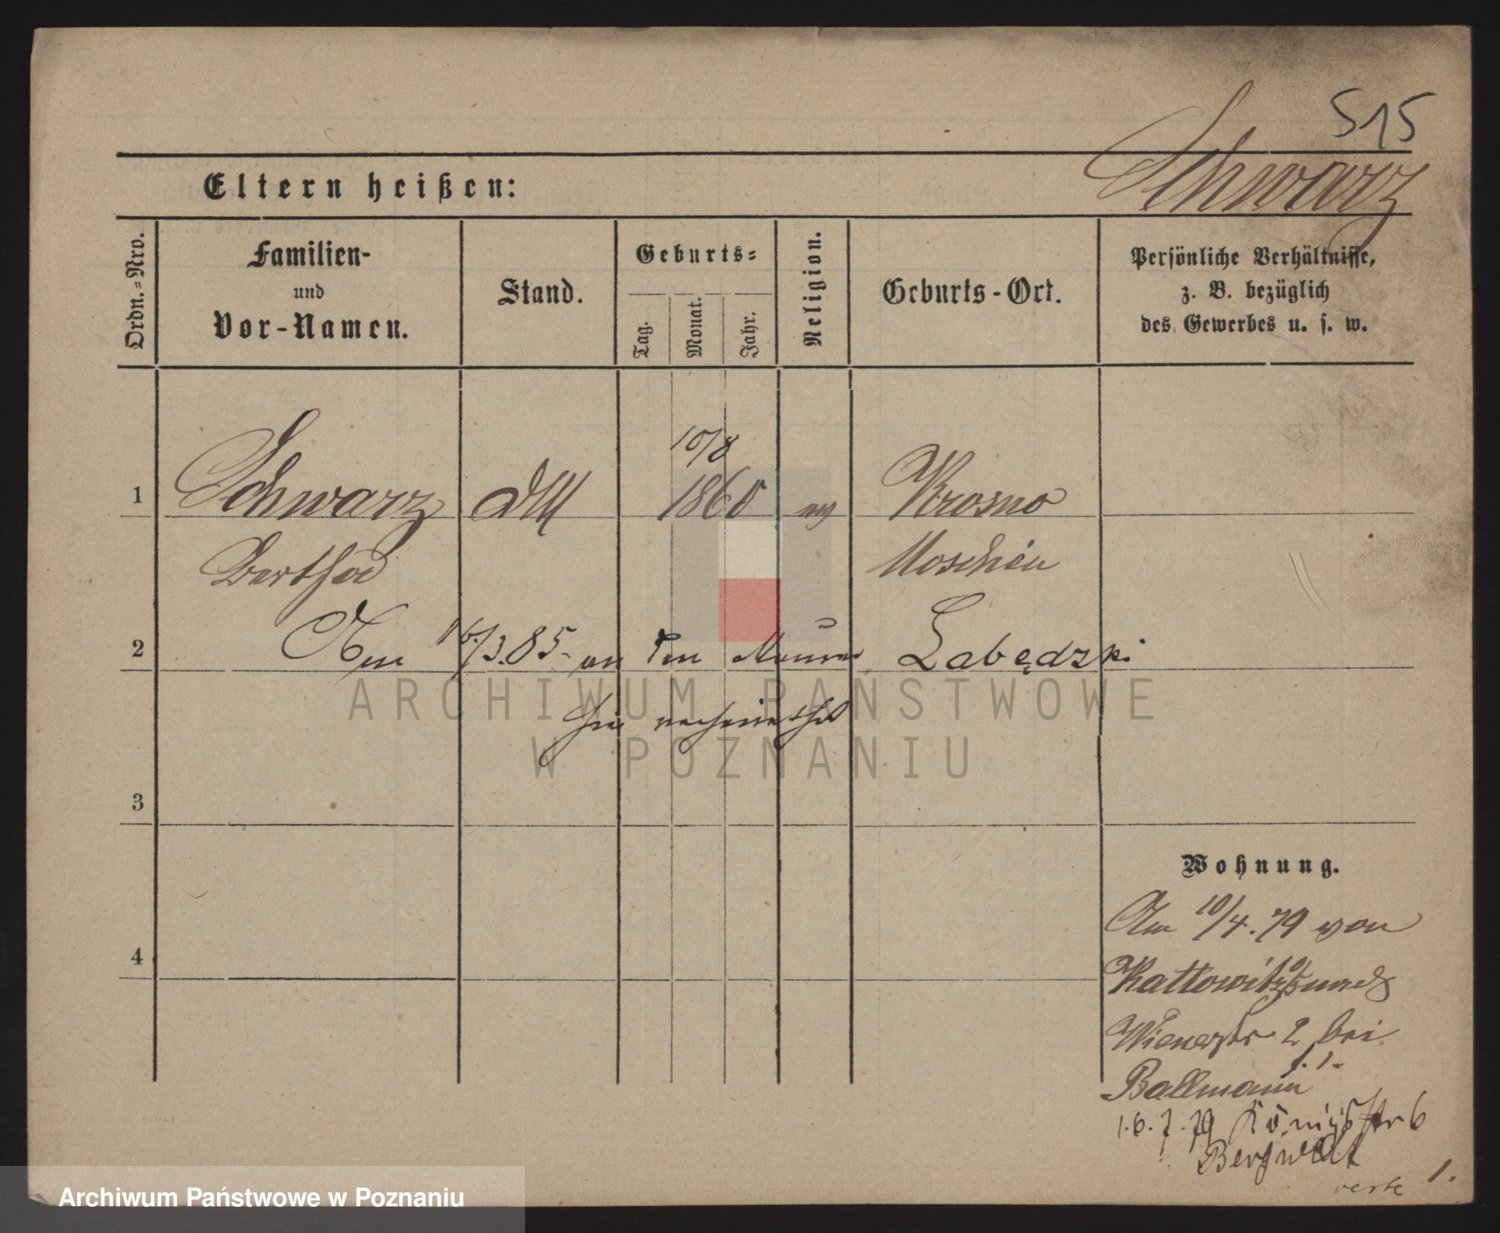 515
Schwarz
Eltern heißen:
Ordn.-Nro.
Familien-
und
Vor-Namen.
Stand.
Geburts-
Tag.
Monat.
Jahr.
Religion.
Geburts-Ort.
Persönliche Verhältnisse,
z. B. bezüglich
des Gewerbes u. s. w.
10/8
1 Schwarz 1860 Krosno
Moschin
2 Am 16/3.85 an den Labędzki
ARCHIWUM PAŃSTWOWE
W POZNANIU
3
Wohnung.
4
Am 10/4.79 von
Kattowitz
Wienerstr 2 bei
Ballmann
16.7.79 Königsstr 6
verte 1.
Archiwum Państwowe w Poznaniu